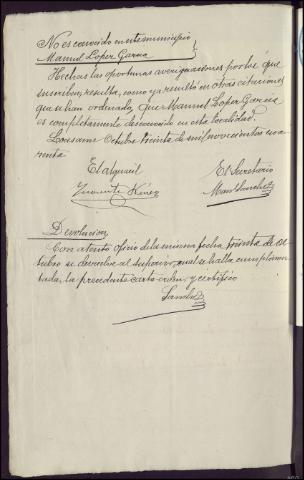 No es conocido en este municipio
Manuel Lopez Garcia
Hechas las oportunas averiguaciones por los que
suscriben, resulta, como ya resultó en otras citaciones
que se han ordenado, que Manuel Lopez Garcia
es completamente desconocido en esta localidad.
Octubre treinta de mil novecientos cua
renta
El alguacil
El Secretario
Devolucion
Con atento oficio de la misma fecha treinta de Oc
tubre se devuelve al superior, cual se halla cumplimen
tada, la precedente carta orden, y certifico